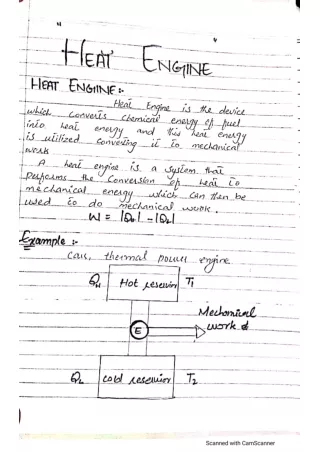 HEAT ENGINE
HEAT ENGINE:-
Heat Engine is the device
which converts chemical energy of fuel
into heat energy and this heat energy
is utilized converting it to mechanical
work
A heat engine is a system that
performs the conversion of heat to
mechanical energy which can then be
used to do mechanical work.
W = |QH| - |QL|
Example :-
Cars, thermal power engine
QH Hot reservior T1
Mechanical
E work
QL cold reservior T2
Scanned with CamScanner